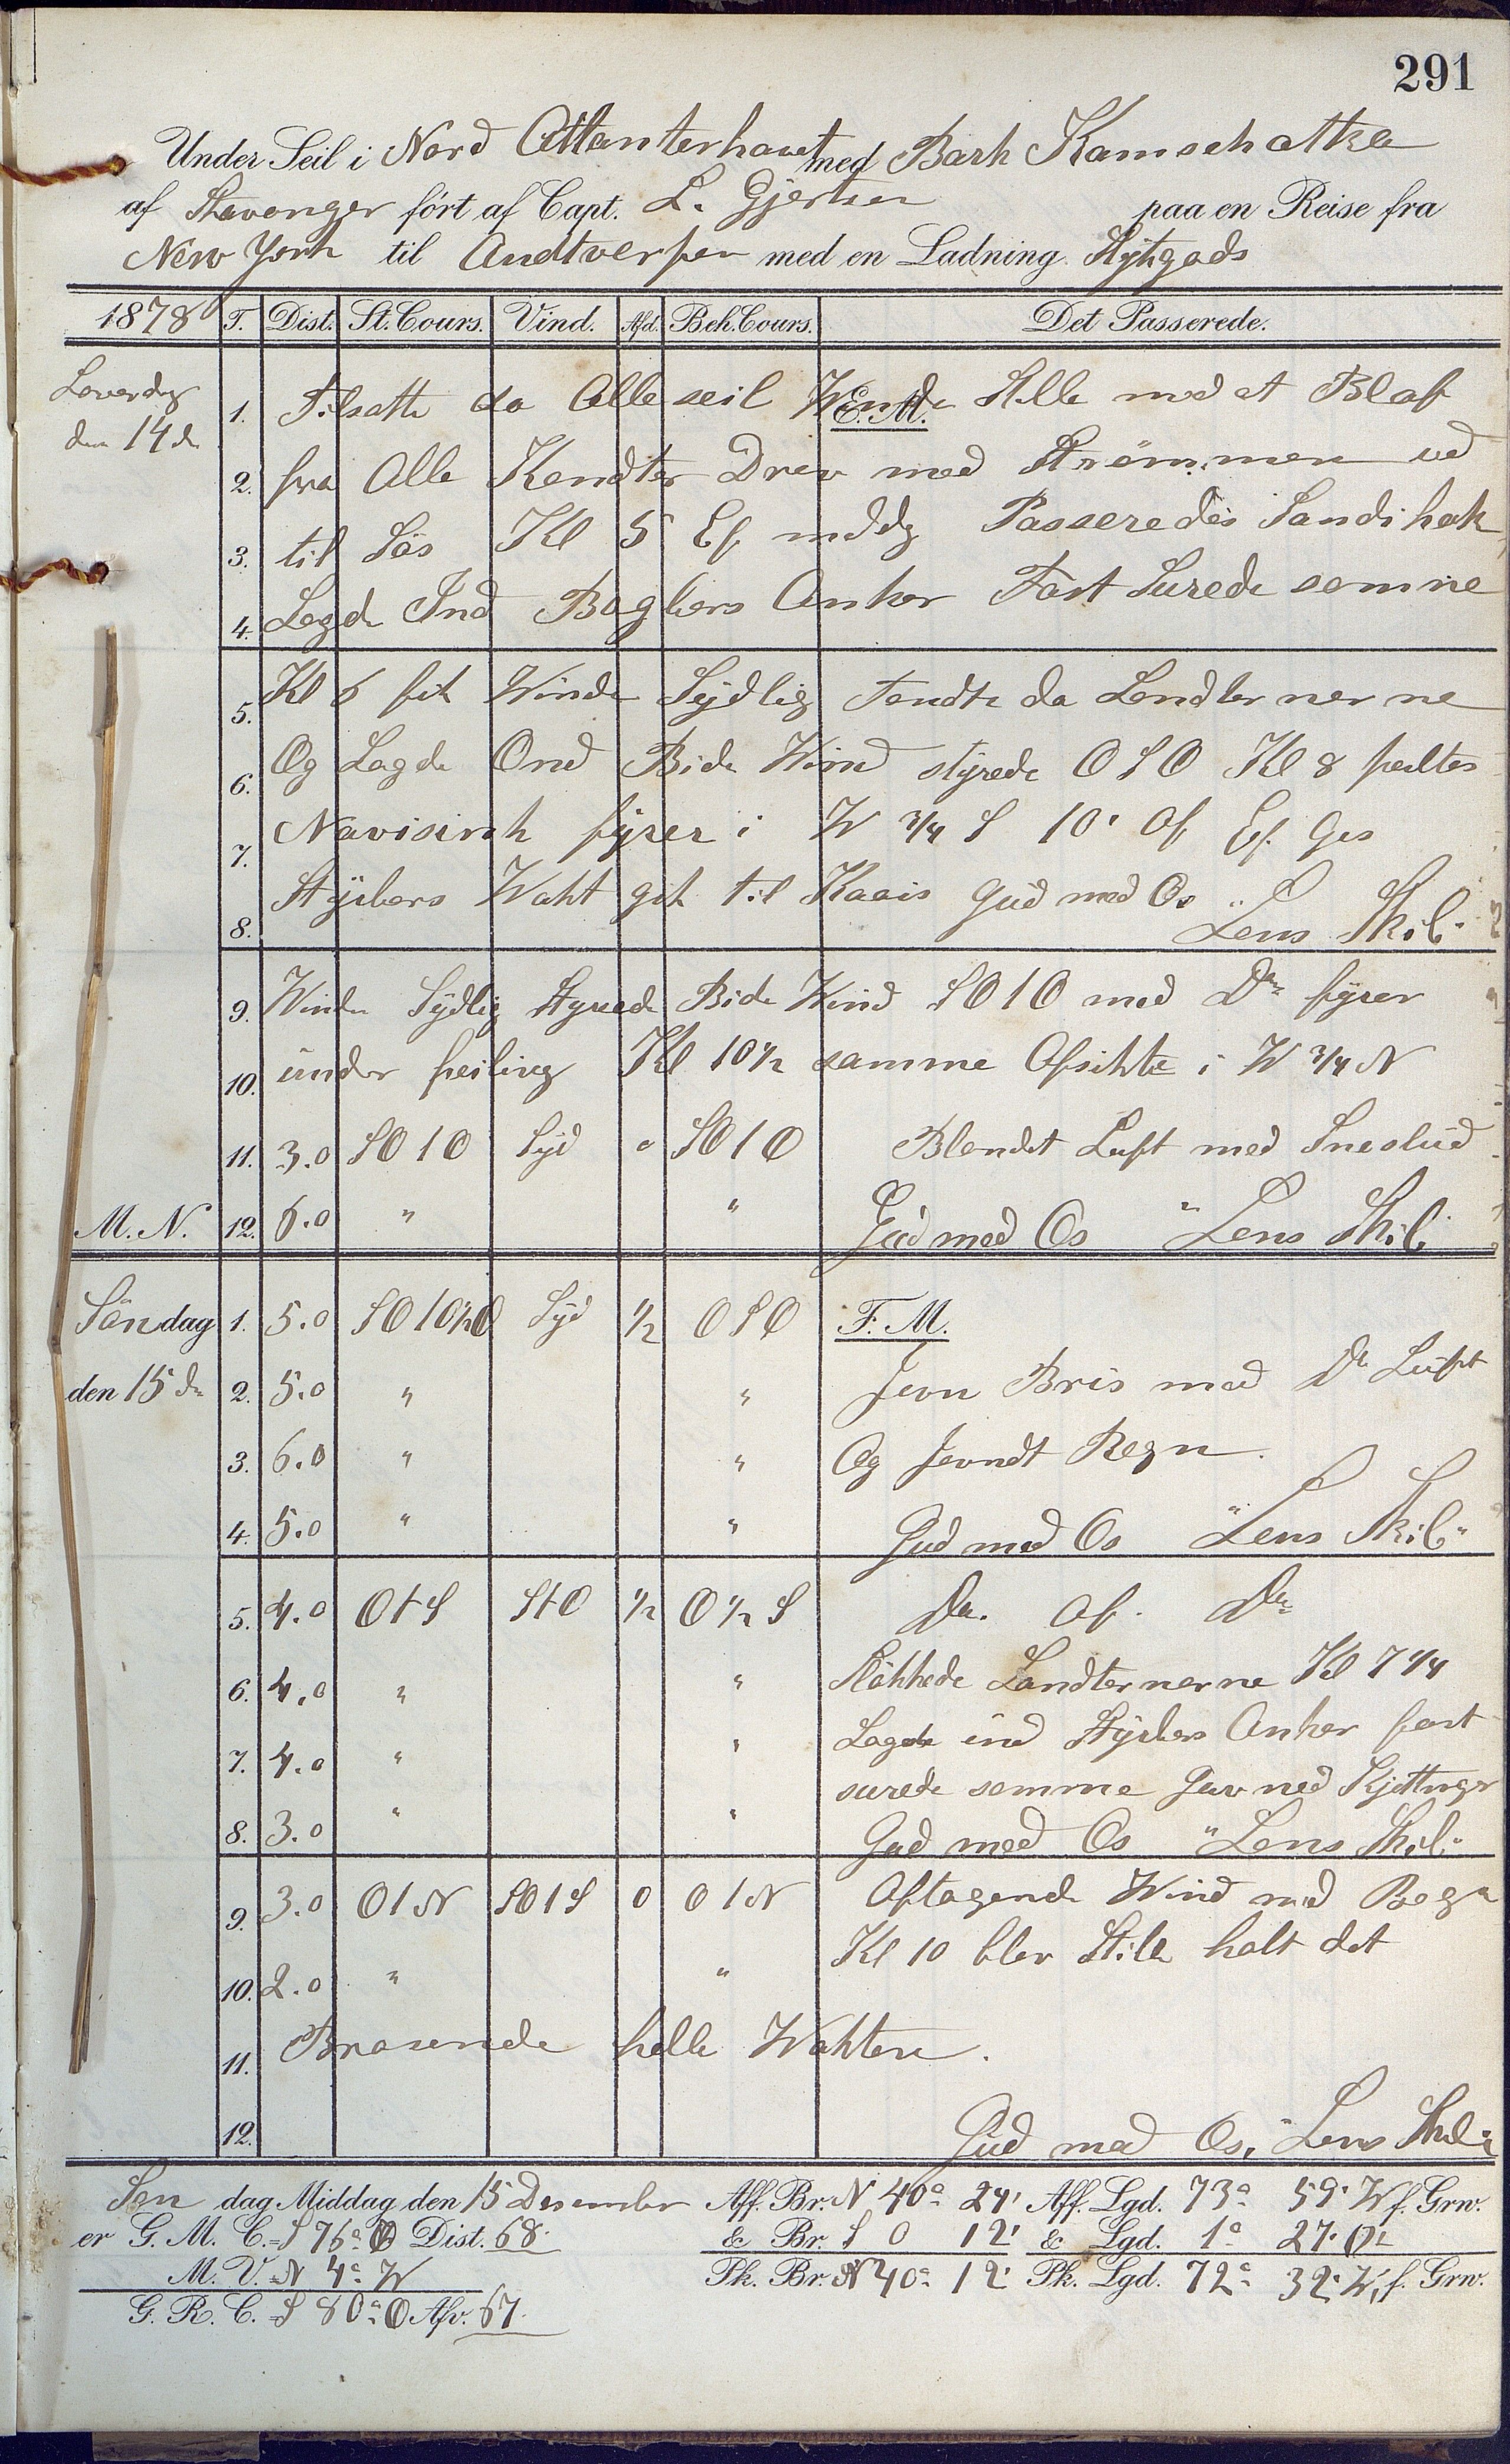 291
Under Seil i Nord Attanterhavet med Bark Kamschatka
af Stavanger ført af Capt. L. Gjertsen paa en Reise fra
New York til Andtverpen med en Ladning Stÿkgods
1878 T. Dist. St. Cours. Vind. Afd. Beh. Cours. Det Passerede.
E.M.
Løverdag 1. Tilsatte da Alle seil Winde Stille med et Blaf
den 14de 2. fra Alle Kandter Drev med Strømmen ud
3. til Søs Kl 5 Ef mddg Passeredes Sandihok
4. Lagde Ind Bagbors Anker Fast Surede samme
5. Kl 6 fik Winde Sÿdlig Tendte da Landternerne
6. Og Lagde Ond Bide Wind stÿrede OSO Kl 8 peiltes
7. Navisink fÿrer i W 3/4 S 10' Af Ef. Gis
8. Stÿrbors Wakt gik til Kaais Gud med Os " Lens Skib "
9. Winden Sÿdlig Styrede Bide Wind SO t O med Do fÿrer
10. under peiling Kl 10 1/2 samme Afsikte i W 3/4 N
11. 3.0 SO t O Sÿd " SO t O Blandet Luft med Sneslud
M.N. 12. 6.0 " " Gud med Os " Lens Skib "
Søndag 1. 5.0 SO t O 1/2 O Sÿd 1/2 OSO F.M.
den 15de 2. 5.0 " " Jevn Bris med Do Luft
3. 6.0 " " Og Jevndt Regn.
4. 5.0 " " Gud med Os " Lens Skib "
5. 4.0 O t S S t O 1/2 O 1/2 S Do. Af. Do
6. 4.0 " " Slökkede Landternerne Kl 7 1/4
7. 4.0 " " Lagde ind Stÿrbors Anker fast
surede samme Gav ned Kjettinger
8. 3.0 " " Gud med Os " Lens Skib "
9. 3.0 O t N SO t S 0 O t N Aftagende Wind med Regn
10. 2.0 " " Kl 10 blev Stille halt det
11. Brasende helle Wakten.
12. Gud med Os, " Lens Skib "
Søn dag Middag den 15 Desember Aff. Br. N 40° 24' Aff. Lgd. 73° 59' W f. Grw.
er G. M. C. = S 76° O Dist. 68. & Br. S 0 12' & Lgd. 1° 27' O
M. V. = N 4° W Pk. Br. N 40° 12' Pk. Lgd. 72° 32' W, f. Grw.
G. R. C. = S 80° O Afv. 67.